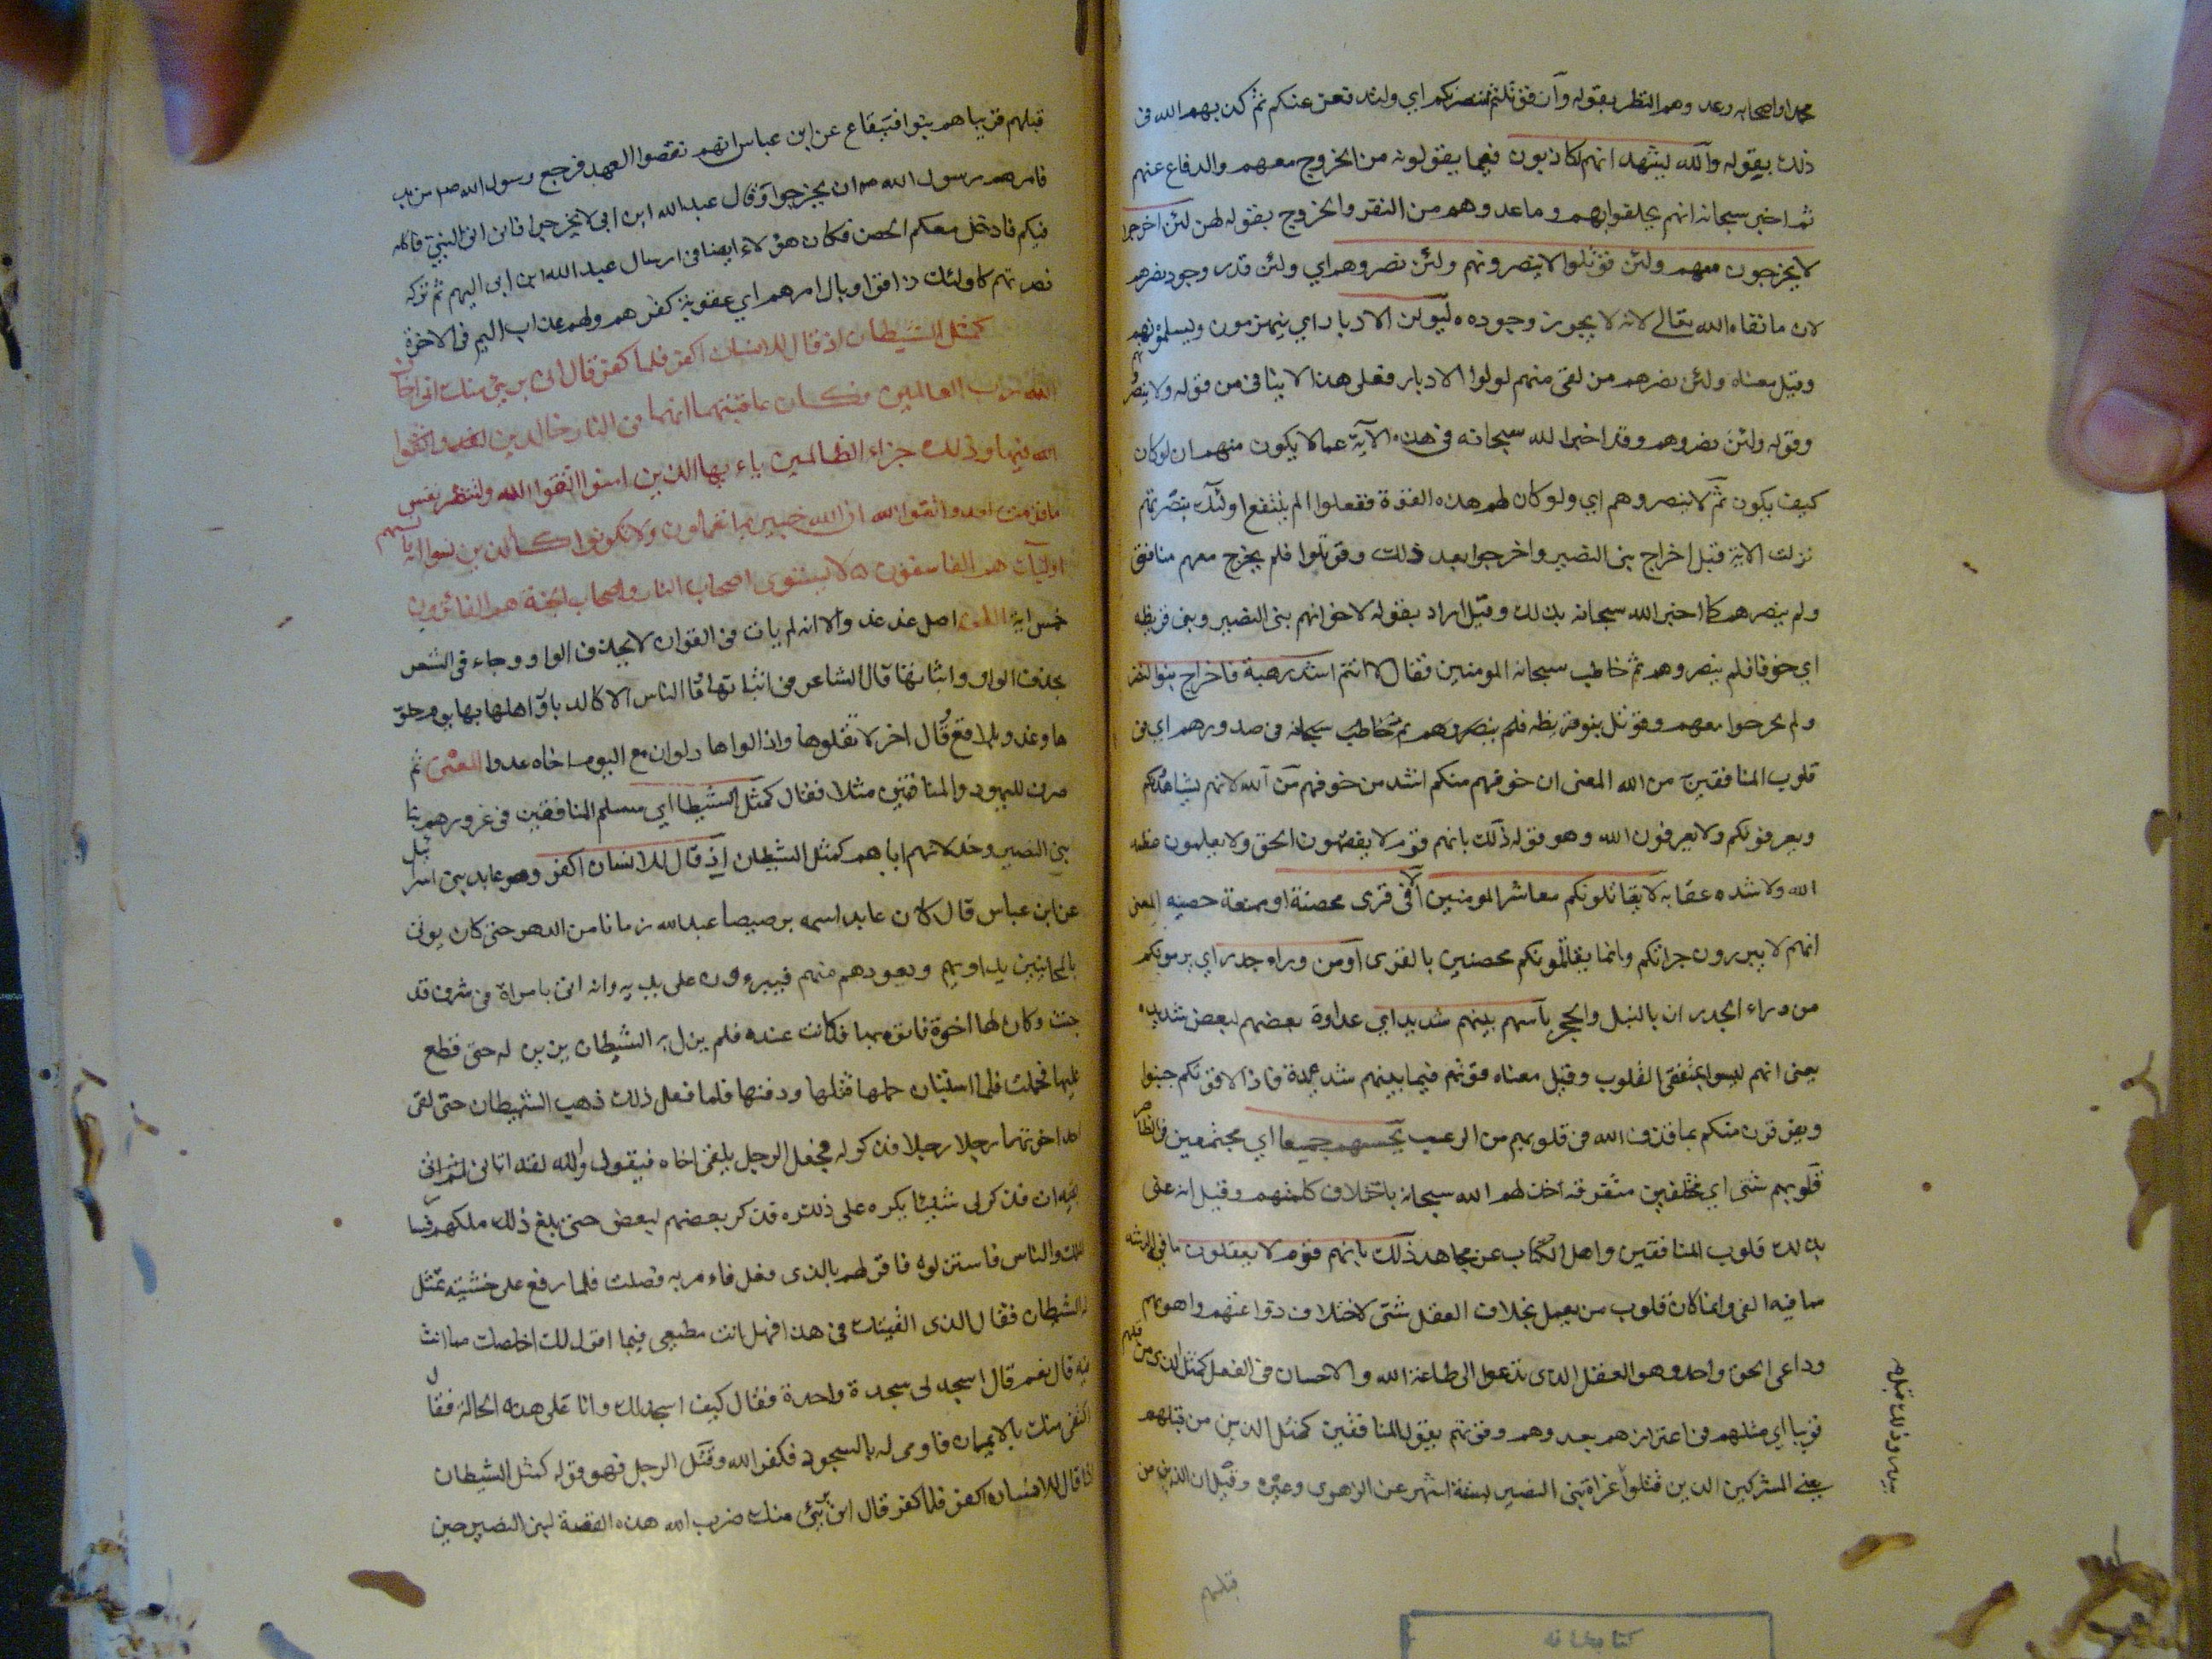 محمدا واصحابه وعد وهم النظر بقوله وان قوتلتم لننصرنكم اي ولند فعن عنكم ثم كذبهم الله فى
ذلك بقوله والله يشهد انهم لكاذبون فيما يقولونه من الخروج معهم والدفاع عنهم
ثم اخبر سبحانه انهم يخلفونهم وما عدوهم من النصر والخروج بقوله لئن اخرجوا
لا يخرجون معهم ولئن قوتلوا لا ينصرونهم ولئن نصروهم اي ولئن قدر وجود نصرهم
لان ما نفاه الله تعالى لانه لا يجوز وجوده ليولن الادبار اي ينهزمون ويسلمونهم
وقيل معناه ولئن نصرهم من بقى منهم لولوا الادبار فعلى هذا لا ينافى من قوله ولا ينصرونهم
وقوله ولئن نصروهم وقد اخبر الله سبحانه فى هذه الآية عما لا يكون منهم ان لو كان
كيف يكون ثم لا ينصروهم اي ولو كان لهم هذه القوة ففعلوا لم ينتفع اولئك بنصرتهم
نزلت الآية قبل اخراج بنى النضير واخرجوا بعد ذلك وقوتلوا فلم يخرج معهم منافق
ولم ينصرهم كما اخبر الله سبحانه بذلك وقيل اراد بقوله لاخوانهم بنى النضير وبنى قريظه
اي خوفا فلم ينصروهم ثم خاطب سبحانه المومنين فقال لا انتم اشد رهبة فاخراج بنو النضر
ولم يخرجوا معهم وقوتل بنو قريظه فلم ينصروهم ثم خاطب سبحانه فى صدورهم اي فى
قلوب المنافقين من الله المعنى ان خوفهم منكم اشد من خوفهم من الله لانهم يشاهدونكم
ويعرفونكم ولا يعرفون الله وهو قوله ذلك بانهم قوم لا يفقهون الحق ولا يعلمون عظمه
الله ولا شده عقابه لا يقاتلونكم معاشر المومنين الا فى قرى محصنة او ممنعة حصينه المعنى
انهم لا يبرزون جرائكم وانما يقاتلونكم محصنين بالقرى او من وراء جدر اي يرمونكم
من وراء الجدران بالنبل والحجر باسهم بينهم شديد اي عداوة بعضهم لبعض شديده
يعنى انهم ليسوا بمتفقى القلوب وقيل معناه قوتهم فيما بينهم شديدة فاذا لاقوكم جبنوا
ويفرقون منكم بما قذف الله فى قلوبهم من الرعب تحسبهم جميعا اي مجتمعين فى الظاهر
قلوبهم شتى اي مختلفين متفرقه خذلهم الله سبحانه باختلاف كلمتهم وقيل انه عنى
بذلك قلوب المنافقين واهل الكتاب عن مجاهد ذلك بانهم قوم لا يعقلون ما فى الرشد
مما فيه الغى وانما كان قلوب من يعمل بخلاف العقل شتى لاختلاف دواعيهم واهوائهم
وداعى الحق واحد وهو العقل الذى تدعوا الى طاعة الله والاحسان فى الفعل كمثل الذين من قبلهم
قريبا اي مثلهم فى اغترارهم بعدوهم وقوتهم بقول المنافقين كمثل الذين من قبلهم
يعنى المشركين الذين قتلوا غزاة بنى النضير لستة اشهر عن الزهرى وغيره وقيل ان الذين من
قبلهم
كتابخانه
قبلهم قريبا هم بنوا قينقاع عن ابن عباس انهم نقضوا العهد فرجع رسول الله صم من بد
فامرهم رسول الله صم ان يخرجوا وقال عبد الله ابن ابى لا يخرجوا فانى اتى النبى فاكله
فيكم فادخل معكم الحصن فكان هؤلاء ايضا فى ارسال عبد الله ابن ابى اليهم ثم تركه
نصرتهم كاولئك ذاقوا وبال امرهم اي عقوبة كفرهم ولهم عذاب اليم فى الاخرة
كمثل الشيطان اذ قال للانسان اكفر فلما كفر قال انى برئ منك انى اخاف
الله رب العالمين فكان عاقبتهما انهما فى النار خالدين
فيها وذلك جزاء الظالمين ياء يها الذين امنوا اتقوا الله ولتنظر نفس
ما قدمت لغد واتقوا الله ان الله خبير بما تعملون ولا تكونوا كالذين نسوا الله فانسيهم
اولئك هم الفاسقون لا يستوى اصحاب النار واصحاب الجنة هم الفائزون
خمس اية اللغة اصل غد غدو الا انه لم يات فى القران لا بحذف الواو وجاء فى الشعر
بحذف الواو واثباتها قال الشاعر فى اثباتها وما الناس الا كالديار واهلها بها يوم حلو
ها وغدوا بلاقع وقال اخر لا تقلوها وادلواها دلوا ان مع اليوم اخاه غدوا المعنى ثم
ضرب لليهود والمنافقين مثلا فقال كمثل الشيطان اي مثل المنافقين فى غرورهم
بنى النضير وخذلانهم اياهم كمثل الشيطان اذ قال للانسان اكفر وهو عابد بنى اسرائيل
عن ابن عباس قال كان عابد اسمه برصيصا عبد الله زمانا من الدهر حتى كان يوتى
بالمجانين يداويهم ويعودهم منهم فيبرءون على يديه وانه اتى بامراة فى شرف قد
جنت وكان لها اخوة فاتوه بها فكانت عنده فلم يزل به الشيطان يزين له حتى وقع
عليها فحملت فلما استبان حملها قتلها ودفنها فلما فعل ذلك ذهب الشيطان حتى لقى
احد اخوتها رجلا رجلا فذكر له فجعل الرجل يلقى اخاه فيقول والله لقد اتانى
ان فذكر لى شيئا يكره على ذكره فذكر بعضهم لبعض حتى بلغ ذلك ملكهم فسار
الملك والناس فاستنزلوه فاقر لهم بالذى فعل فامر به فصلب فلما رفع على خشبته تمثل
له الشيطان فقال الذى القيتك فى هذا فهل انت مطيعى فيما اقول لك اخلصك مما انت
فيه قال نعم قال اسجد لى سجدة واحدة فقال كيف اسجد لك وانا على هذه الحالة فقال
اكتفى منك بالايماء فاومى له بالسجود فكفر الله وقتل الرجل فهو قوله كمثل الشيطان
اذ قال للانسان اكفر فلما كفر قال انى برئ منك ضرب الله هذه القصة لبنى النضير حين